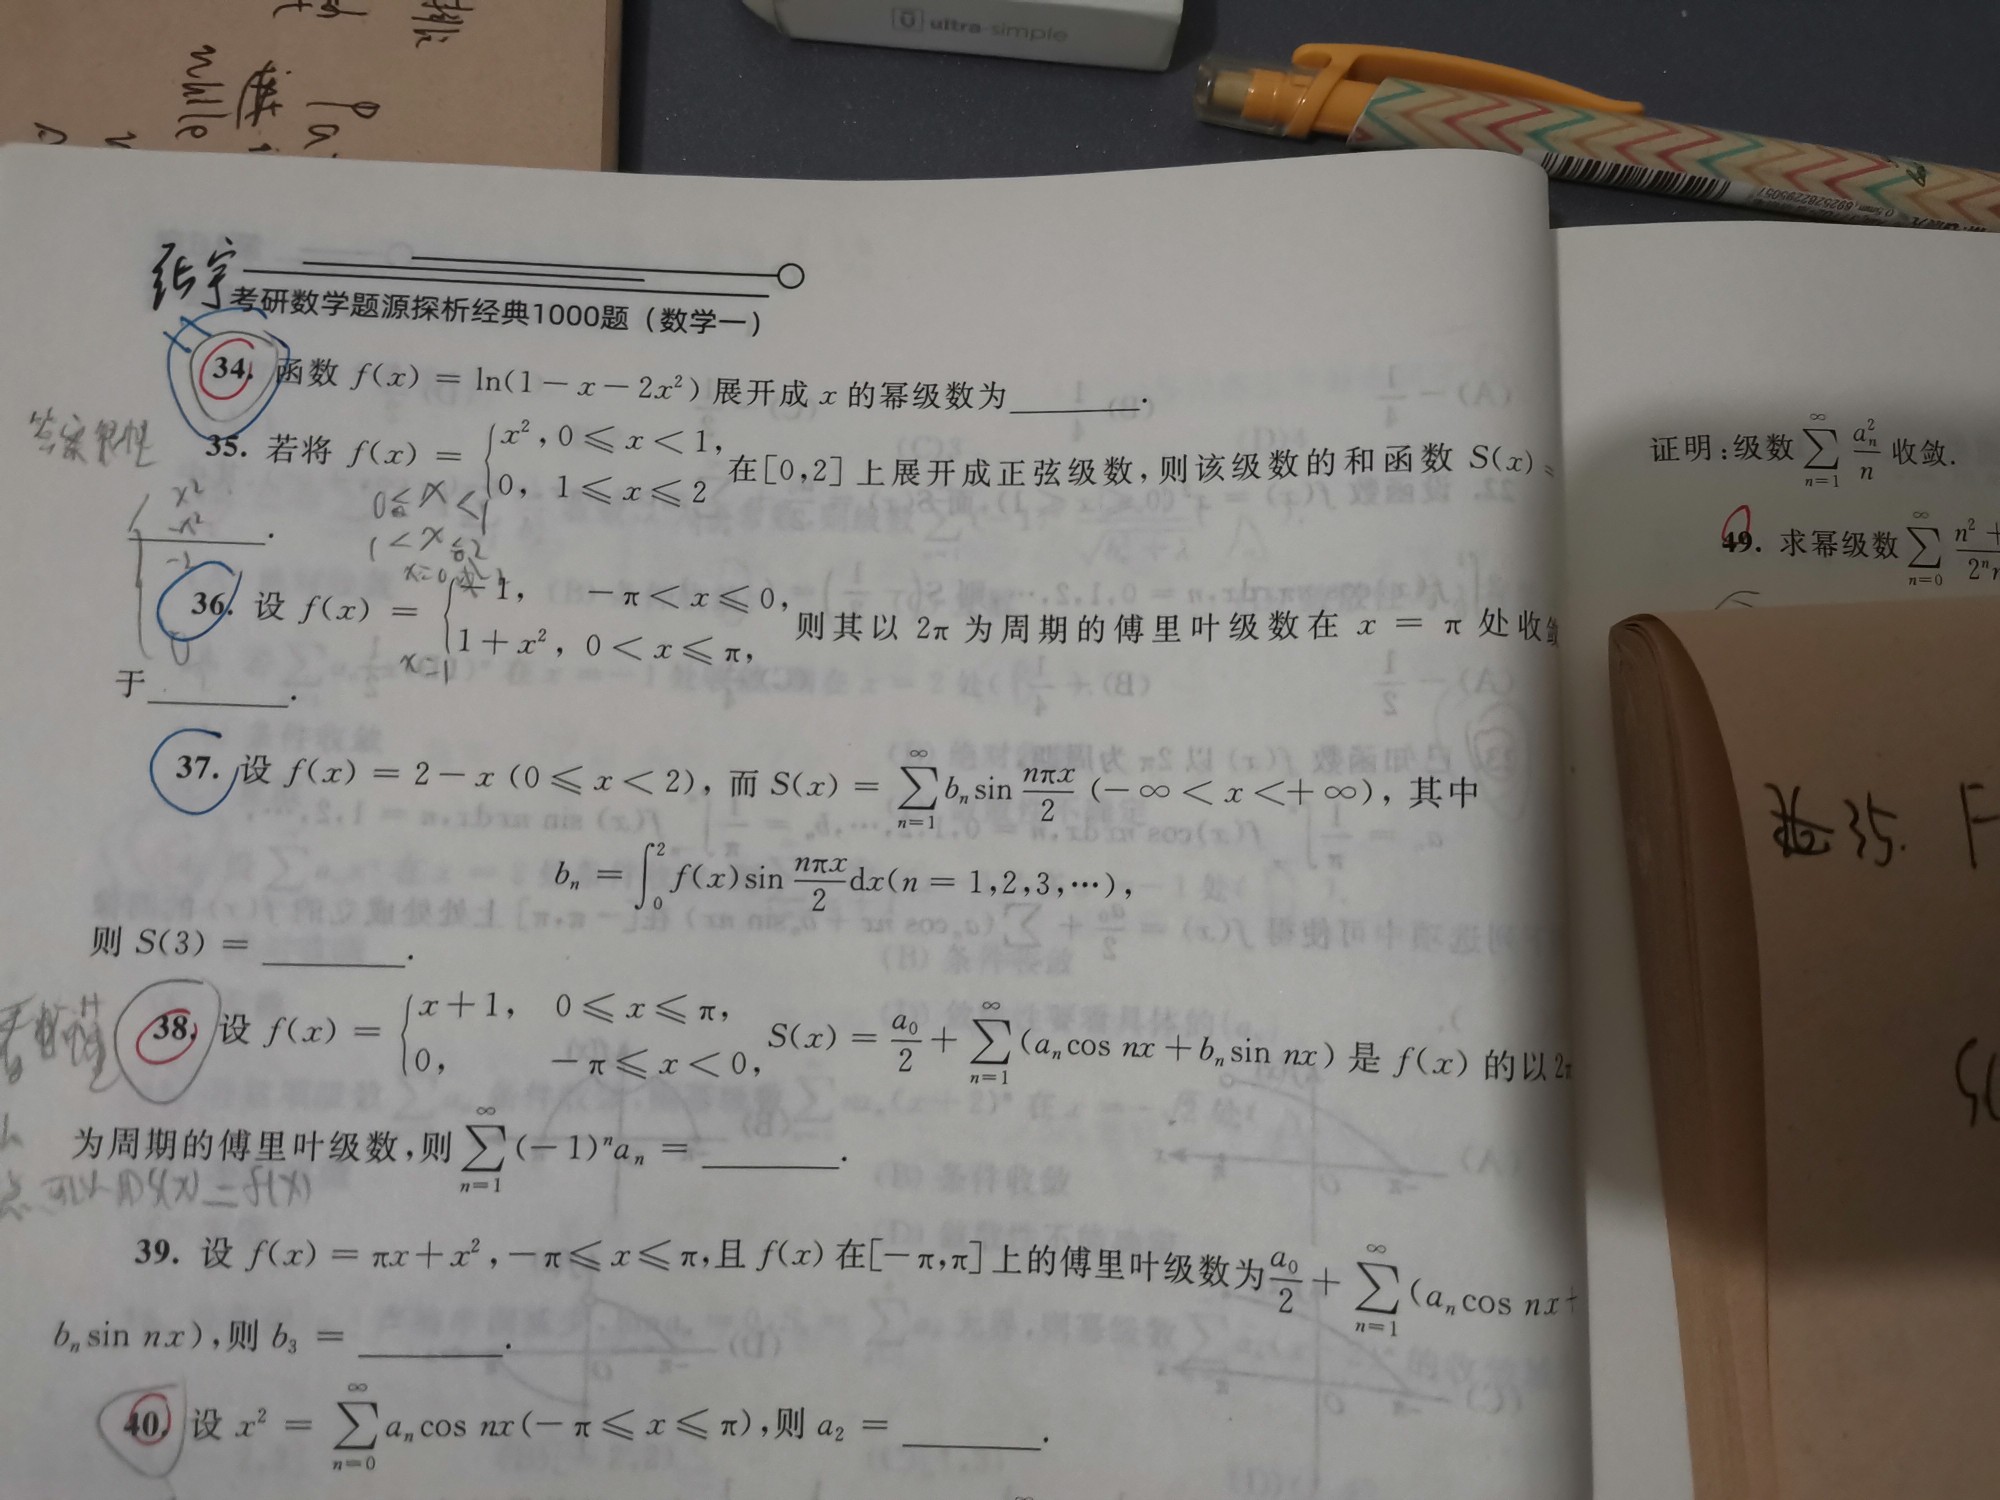 ultra-simple
张宇
考研数学题源探析经典1000题（数学一）
34. 函数 f(x) = ln(1 − x − 2x²) 展开成 x 的幂级数为______.
35. 若将 f(x) = { x², 0 ⩽ x < 1, 0, 1 ⩽ x ⩽ 2 在[0,2] 上展开成正弦级数, 则该级数的和函数 S(x) =
______.
x²
-x²
0 ⩽ x < 1
1 < x ⩽ 2
x=1
36. 设 f(x) = { −1, −π < x ⩽ 0, 1 + x², 0 < x ⩽ π, 则其以 2π 为周期的傅里叶级数在 x = π 处收敛
于______.
37. 设 f(x) = 2 − x (0 ⩽ x < 2), 而 S(x) = ∑_{n=1}^{∞} bₙ sin nπx/2 (−∞ < x < +∞), 其中
bₙ = ∫₀² f(x) sin nπx/2 dx (n = 1,2,3,⋯),
则 S(3) = ______.
38. 设 f(x) = { x + 1, 0 ⩽ x ⩽ π, 0, −π ⩽ x < 0, S(x) = a₀/2 + ∑_{n=1}^{∞} (aₙ cos nx + bₙ sin nx) 是 f(x) 的以 2π
为周期的傅里叶级数, 则 ∑_{n=1}^{∞} (−1)ⁿaₙ = ______.
39. 设 f(x) = πx + x², −π ⩽ x ⩽ π, 且 f(x) 在[−π,π] 上的傅里叶级数为 a₀/2 + ∑_{n=1}^{∞} (aₙ cos nx +
bₙ sin nx), 则 b₃ = ______.
40. 设 x² = ∑_{n=0}^{∞} aₙ cos nx (−π ⩽ x ⩽ π), 则 a₂ = ______.
证明: 级数 ∑_{n=1}^{∞} aₙ²/n 收敛.
49. 求幂级数 ∑_{n=0}^{∞} n² +
35.